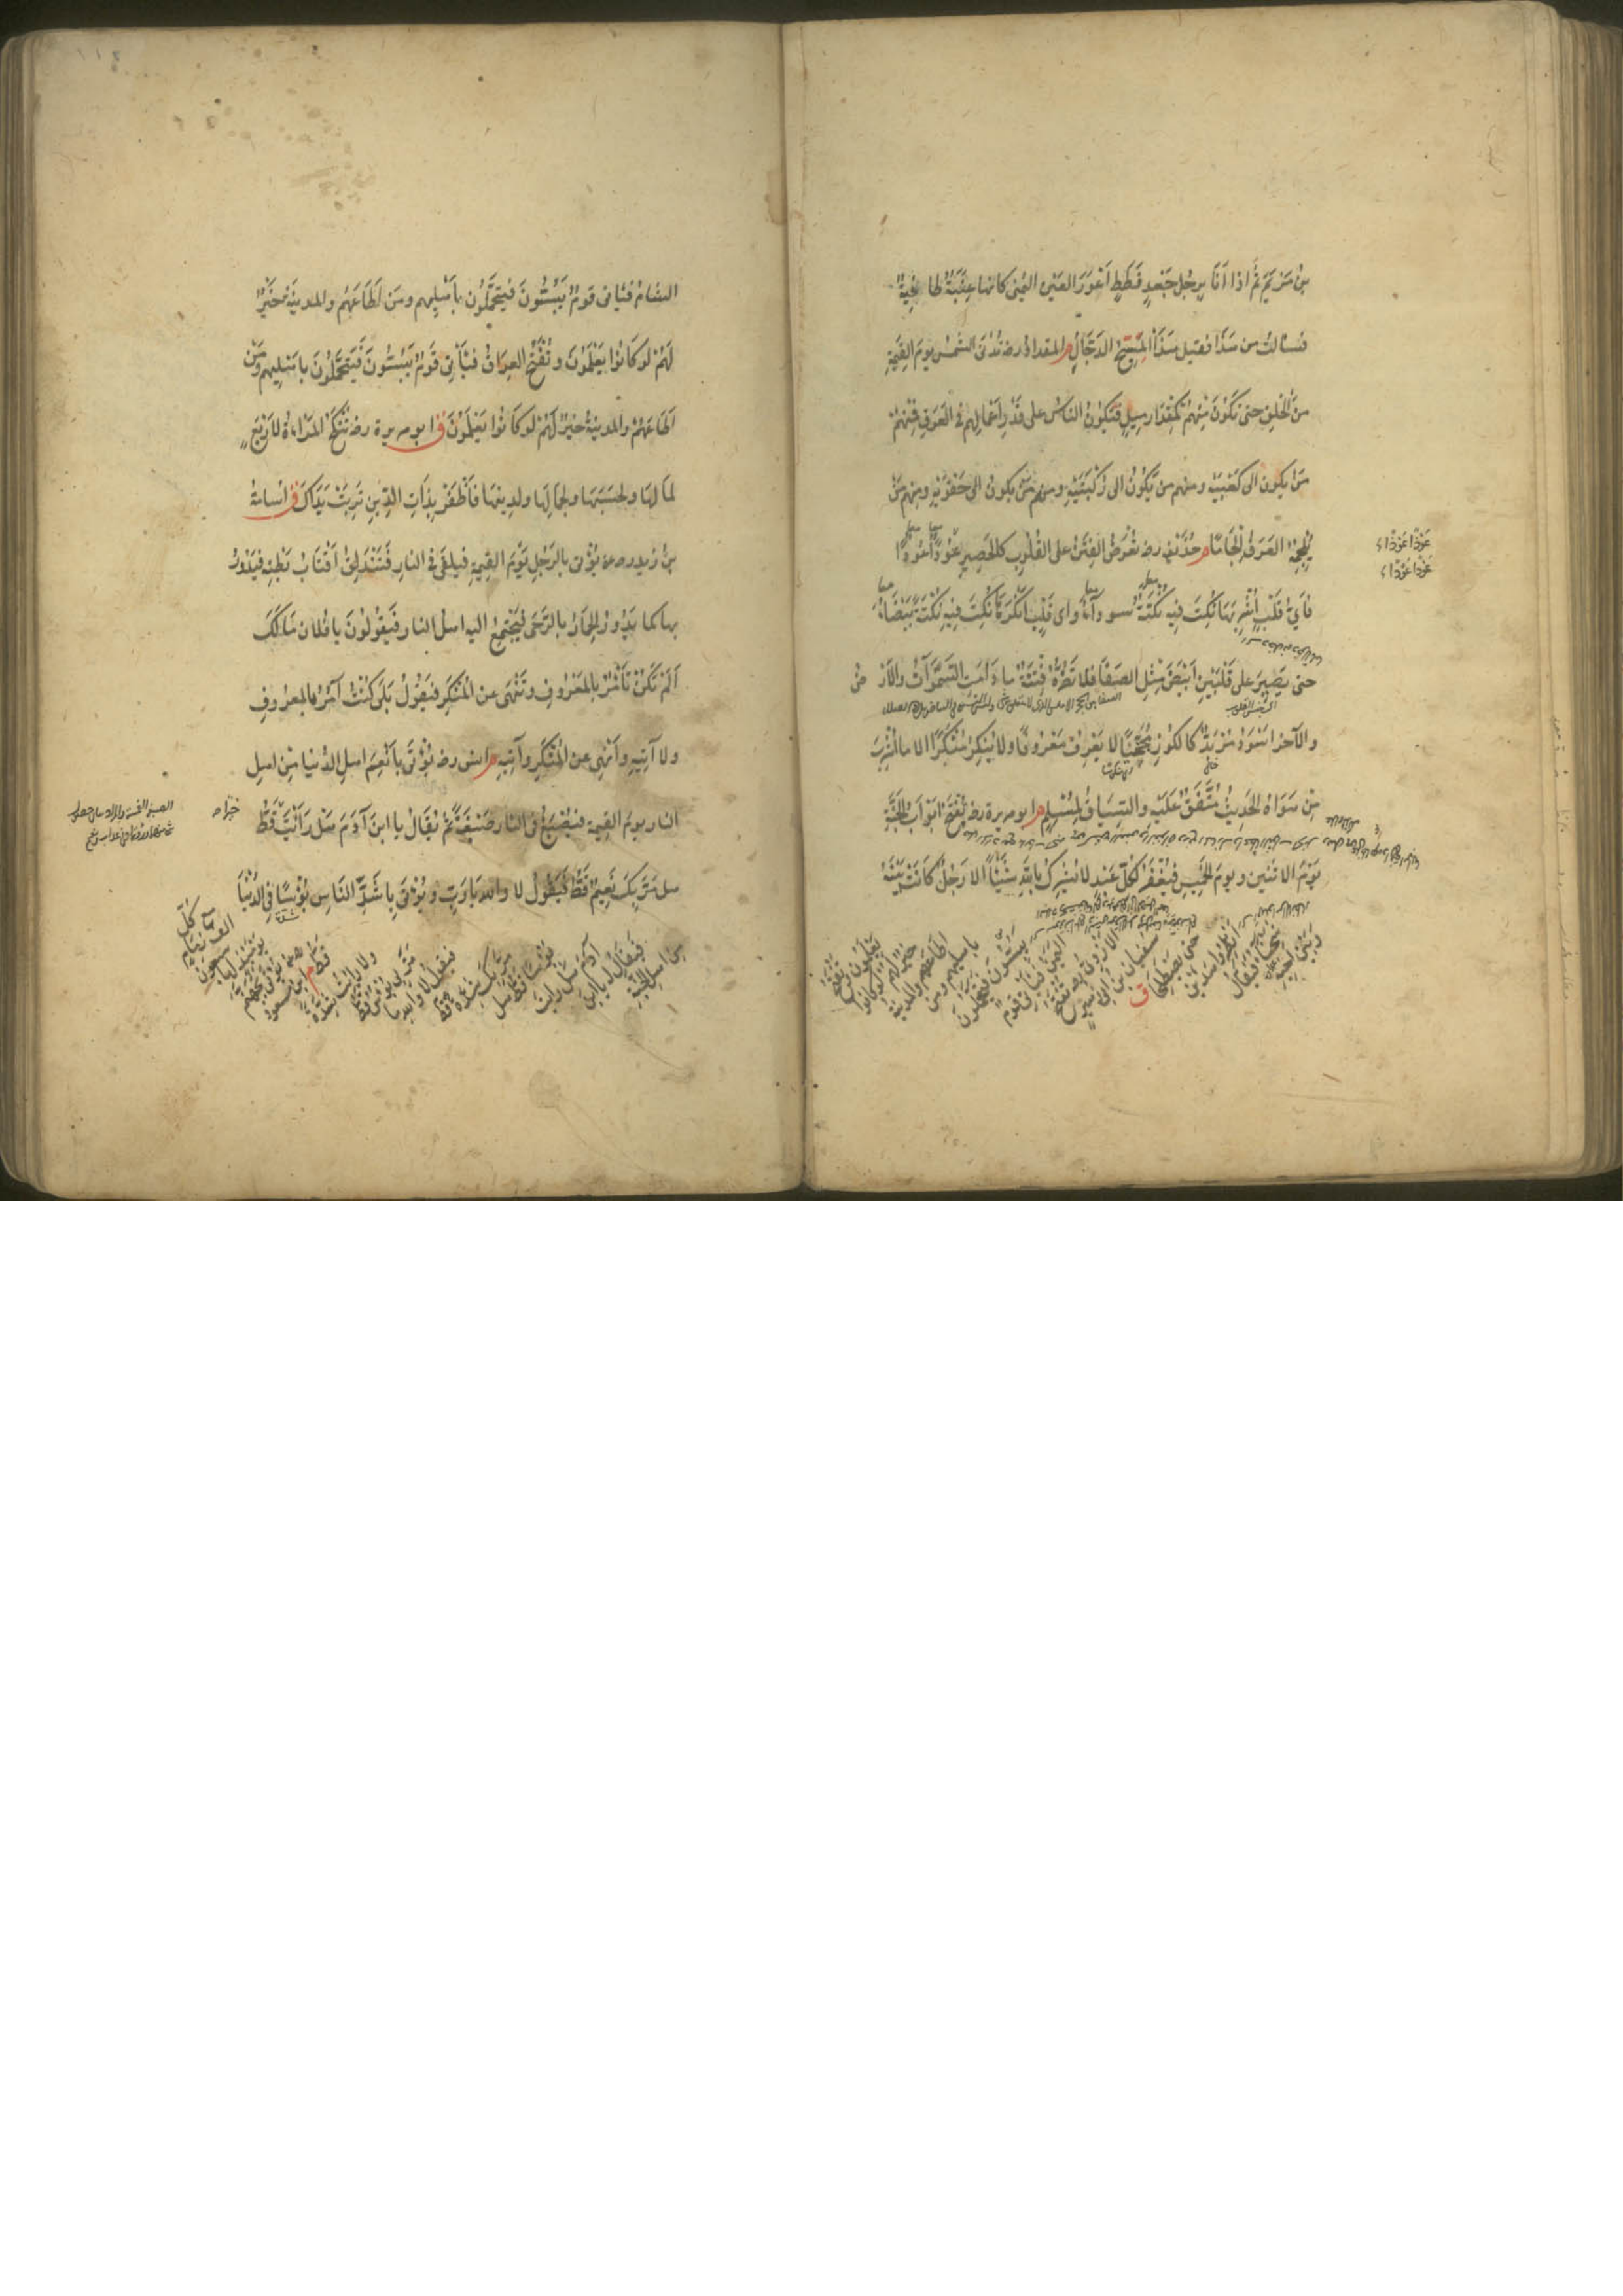 بْنُ مَرْيَمَ ثُمَّ اِذَا اَنَا بِرَجُلٍ جَعْدٍ قَطَطٍ اَعْوَرَ العَيْنِ اليُمْنٰى كَانَّهَا عِنَبَةٌ طَافِيَةٌ
فسَالتُ من هَذَا فقيل هَذَا المَسِيْحُ الدَجَّالُ م المقدادُ رض تُدْنَى الشمْسُ يومَ القِيٰمَةِ
مِنَ الْخَلْقِ حتى تَكُوْنَ مِنْهُمْ كَمِقْدَارِ مِيْلٍ فَتَكُوْنُ النَاسُ على قَدْرِ اَعْمَالِهِمْ فِى العَرَقِ فَمِنْهُمْ
مَنْ يكون الى كَعْبَيْهِ ومنهم من يَكُوْنُ الى رُكْبَتَيْهِ ومنهم مَنْ يكون الى حَقْوَيْهِ ومنهم مَنْ
يُلْجِمُهُ العَرَقُ اِلْجَامًا م حُذَيْفَة رض تُعْرَضُ الفِتَنُ على القُلُوبِ كالحَصِيرِ عُوْدًا عُوْدًا
عَوْدًا عَوْدًا
عَوْذًا عَوْذًا
فَاَيُّ قَلْبٍ اُشْرِبَهَا نُكِتَ فِيهِ نُكْتَةٌ سوداءُ واى قَلْبٍ اَنْكَرَهَا نُكِتَ فِيْهِ نُكْتَةٌ بَيْضَاءُ
حتى يَصِيْرَ على قَلْبَيْنِ اَبْيَضَ مِثْلِ الصَفَا فلا تَضُرُّهُ فِتْنَةٌ ما دَامَتِ السَمٰوَاتُ والاَرْضُ
والآخر اَسْوَدُ مُرْبَدٌّ كالكُوزِ مُجَخِّيًا لا يَعْرِفُ مَعْرُوفًا ولا يُنْكِرُ مُنْكَرًا الا ما اُشْرِبَ
مِنْ هَوَاهُ الحَدِيْثُ مُتَّفَقٌ عَلَيْهِ والسِيَاقُ لِمُسْلِمٍ م ابو هريرة رض تُفْتَحُ اَبْوَابُ الْجَنَّةِ
يَوْمَ الاثنين ويومَ الخَمِيسِ فيُغْفَرُ لكُلِّ عَبْدٍ لا يُشْرِكُ بِاللّٰهِ شَيْئًا الا رَجُلٌ كَانَتْ بَيْنَهُ
وَبَيْنَ اَخِيْهِ
شَحْنَاءُ فَيُقَالُ
اَنْظِرُوا هٰذَيْنِ
حتى يَصْطَلِحَا ق
سفيان بن ابى زهير
الازدى رض تُفْتَحُ
اليَمَنُ فيَأتى قَوْمٌ
يَبُسُّوْنَ فَيَتَحَمَّلُوْنَ
باهليهم ومن
اَطَاعَهُمْ والمدينةُ
خَيْرٌ لهم لَوْ كانوا
يَعْلَمُوْنَ وتُفْتَحُ
الشامُ فيَاتى قومٌ يَبُسُّونَ فيتحَمَّلُون باَهْلِيهم ومَن اَطَاعَهُمْ والمدينةُ خَيْرٌ
لَهُمْ لو كَانُوا يَعْلَمُوْنَ وتُفْتَحُ العِرَاقُ فيَأْتى قَوْمٌ يَبُسُّونَ فَيَتَحَمَّلُوْنَ باهْلِيهم ومَنْ
اَطَاعَهُمْ والمدينةُ خَيْرٌ لَهُمْ لو كَانُوا يَعْلَمُوْنَ ق ابو هريرة رض تُنْكَحُ المَرْأةُ لاَرْبَعٍ
لمَالِهَا ولحَسَبِهَا ولجَمَالِهَا ولدِينِهَا فَاظْفَرْ بِذَاتِ الدِّيْنِ تَرِبَتْ يَدَاكَ ق اسامة
بنُ زيد رض يُؤْتٰى بالرَجُلِ يَوْمَ القِيٰمَةِ فيُلْقٰى فى النارِ فَتَنْدَلِقُ اَقْتَابُ بَطْنِهِ فيَدُوْرُ
بها كما يَدُوْرُ الحِمَارُ بالرَّحٰى فيَجْتَمِعُ اليه اهلُ النار فَيَقُوْلُوْنَ يا فُلانُ مَا لَكَ
اَلَمْ تَكُنْ تَأْمُرُ بِالمَعْرُوفِ وتَنْهٰى عن المُنْكَرِ فيَقُوْلُ بَلٰى كُنْتُ آمُرُ بالمعروفِ
ولا آتِيْهِ وَاَنْهٰى عن المُنْكَرِ وآتِيْهِ م انس رض يُؤْتٰى بِاَنْعَمِ اهلِ الدُنيا مِنْ اهلِ
النار يومَ القِيٰمَة فيُصْبَغُ فى النار صَبْغَةً ثُمَّ يُقَالُ يا ابنَ آدَمَ هَلْ رَاَيْتَ قَطُّ
خيرا
هل مَرَّ بِكَ نَعِيْمٌ قَطُّ فَيَقُولُ لا واللهِ يَا رَبِّ ويُؤْتٰى بِاَشَدِّ النَاسِ بُؤْسًا فِى الدُنْيَا
مِنْ اهلِ الجَنَّةِ
فَيُقَالُ له يا ابنَ
آدَمَ هَلْ رَايتَ
بُؤْسًا قَطُّ هَل
مَرَّ بِكَ شِدَّةٌ قط
فيَقُولُ لا وَاللهِ ما
مَرَّ بِى بُؤْسٌ قَطُّ
ولا رَاَيْتُ شِدَّةً
قَطُّ م ابن مسعود
رض يُؤْتٰى بِجَهَنَّمَ
يَوْمَئِذٍ لَهَا سبعون
الف زِمَامٍ
مع كُلِّ